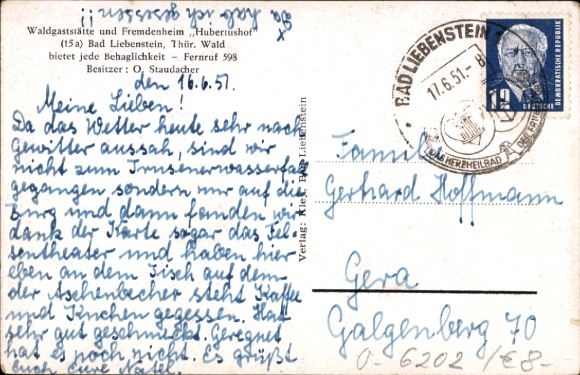 Da hab ich gesessen!!
Waldgaststätte und Fremdenheim „Hubertushof"
(15a) Bad Liebenstein, Thür. Wald
bietet jede Behaglichkeit – Fernruf 598
Besitzer: O. Staudacher
den 16.6.51.
Meine Lieben!
Da das Wetter heute sehr nach
Gewitter aussah, sind wir
nicht zum Trusenerwasserfall
gegangen sondern nur auf die
Burg und dann fanden wir
dank der Karte sogar das Fel-
sentheater und haben hier
eben an dem Tisch auf dem
der Aschenbecher steht Kaffee
und Kuchen gegessen. Hat
sehr gut geschmeckt. Geregnet
hat es noch nicht. Es grüßt
Euch eure
Verlag: Bad Liebenstein
BAD LIEBENSTEIN
17.6.51.- 8
DAS HERZHEILBAD
12
DEUTSCHE
DEMOKRATISCHE REPUBLIK
Familie
Gerhard Hoffmann
Gera
Galgenberg 70
O- 6202 /€8-